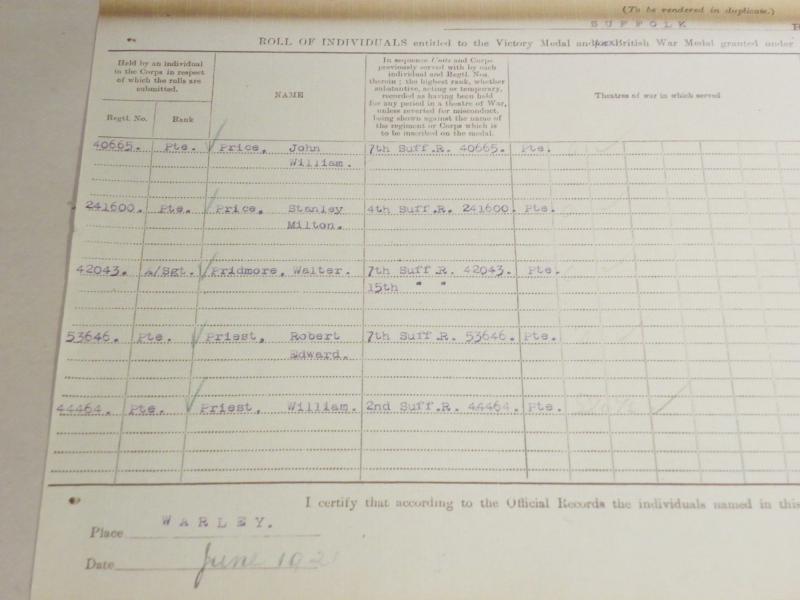 (To be rendered in duplicate.)
SUFFOLK
ROLL OF INDIVIDUALS entitled to the Victory Medal and/or British War Medal granted under
Held by an individual
in the Corps in respect
of which the rolls are
submitted.
Regtl. No.
Rank
NAME
In sequence Units and Corps
previously served with by each
individual and Regtl. Nos.
therein; the highest rank, whether
substantive, acting or temporary,
recorded as having been held
for any period in a theatre of War,
unless reverted for misconduct,
being shown against the name of
the regiment or Corps which is
to be inscribed on the medal.
Theatres of war in which served
40665. Pte. Price, John 7th Suff.R. 40665. Pte.
William.
241600. Pte. Price, Stanley 4th Suff.R. 241600. Pte.
Milton.
42043. A/Sgt. Pridmore, Walter. 7th Suff.R. 42043. Pte.
15th " "
53646. Pte. Priest, Robert 7th Suff.R. 53646. Pte.
Edward.
44464. Pte. Priest, William. 2nd Suff.R. 44464. Pte.
I certify that according to the Official Records the individuals named in this
Place WARLEY.
Date June 192